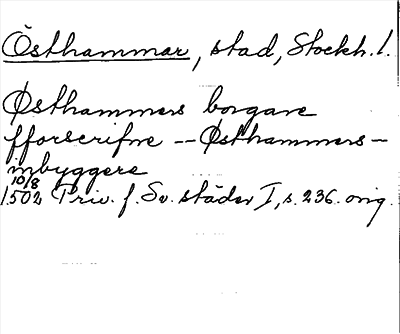 Östhammar, stad, Stockh. l.
Østhammers borgare
fforscrifne -- Østhammers-
inbyggere
10/8
1502 Priv. f. Sv. städer I, s. 236. orig.